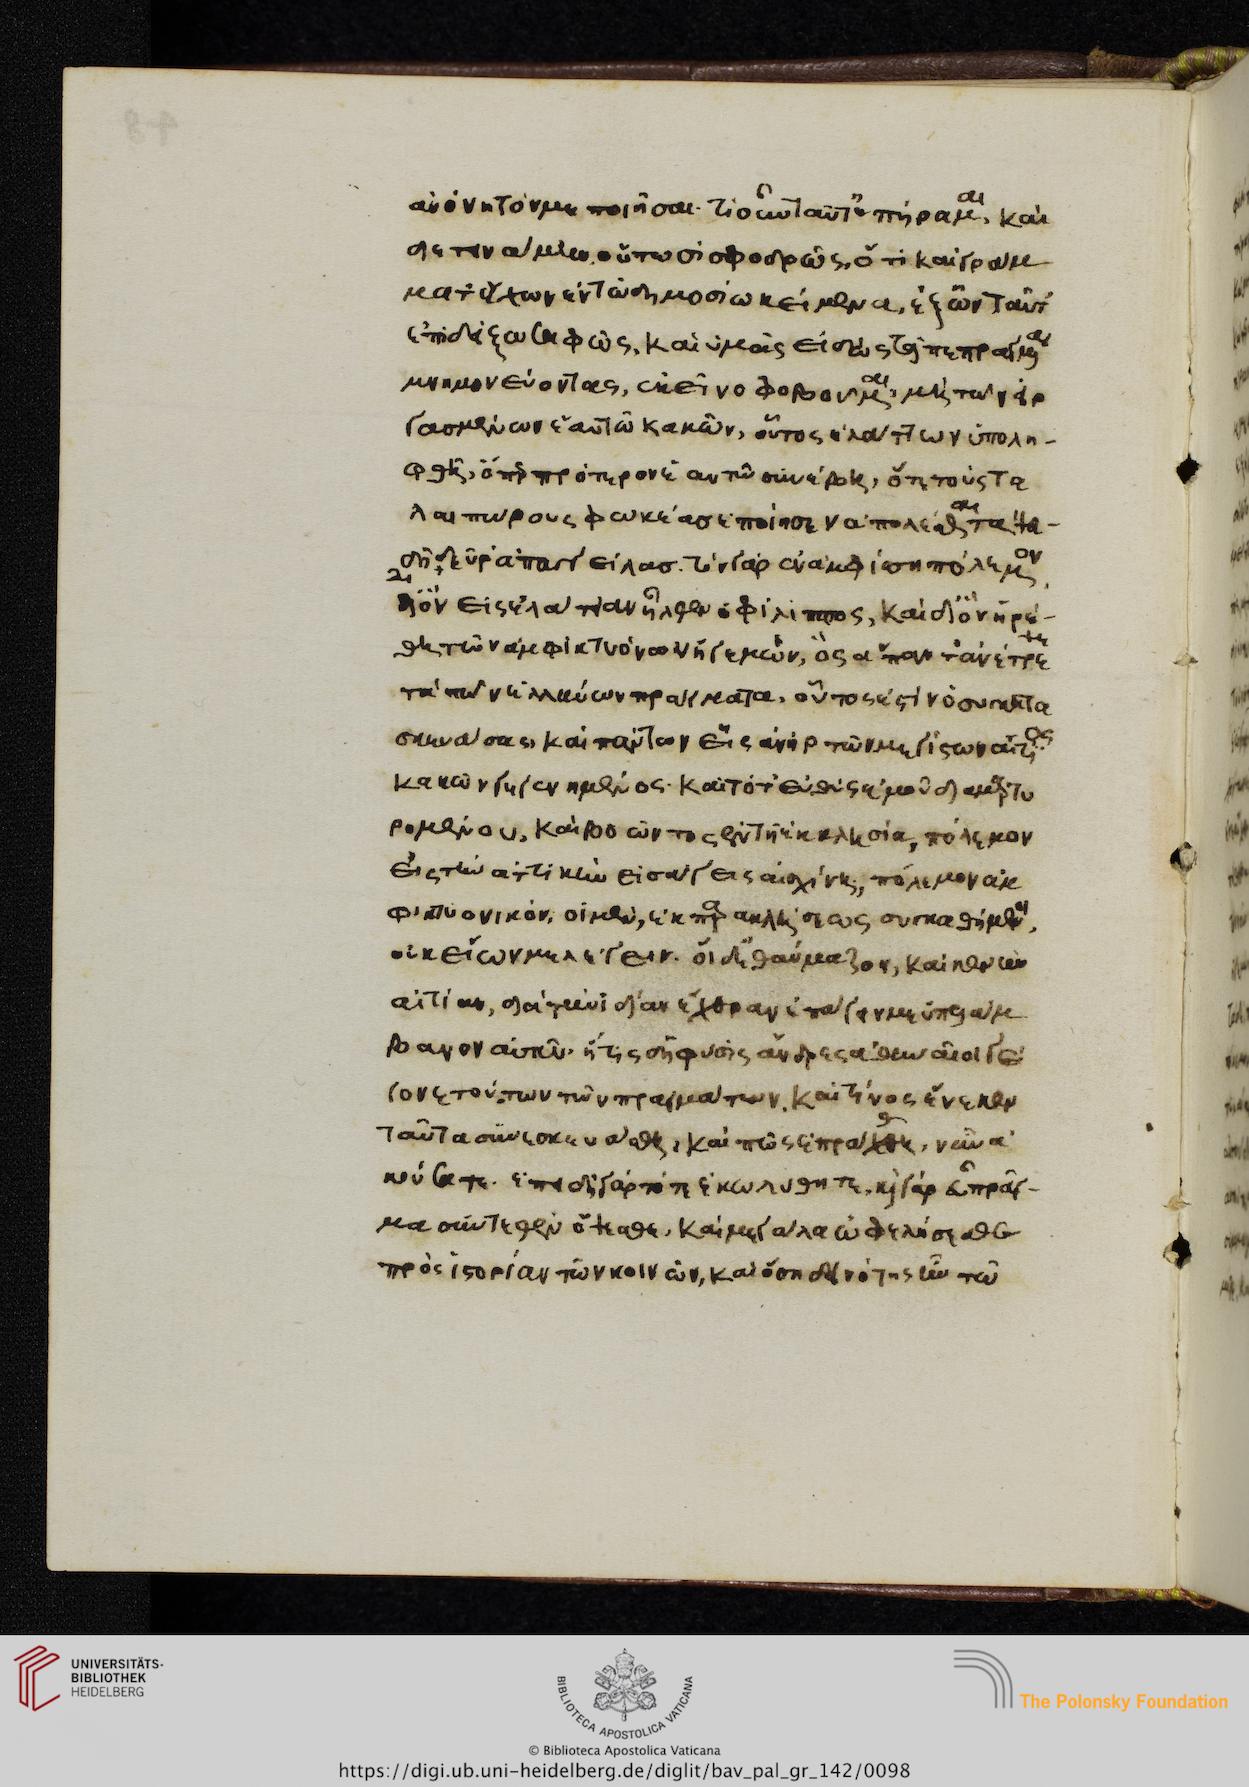 ἀνόνητόν με ποιῆσαι. τί οὖν ταῦτ' ἐπήραμαι, καὶ
διετεινάμην οὑτωσὶ σφοδρῶς, ὅτι καὶ γράμ
ματ' ἔχων ἐν τῷ δημοσίῳ κείμενα, ἐξ ὧν ταῦτ'
ἐπιδείξω σαφῶς, καὶ ὑμᾶς εἰδὼς τὰ πεπραγμένα
μνημονεύοντας, ἐκεῖνο φοβοῦμαι, μὴ τῶν εἰρ
γασμένων αὐτῷ κακῶν, οὗτος ἐλάττων ὑπολη-
φθῇ, ὅπερ πρότερον αὐτῷ συνέβη, ὅτε τοὺς τα
λαιπώρους φωκέας ἐποίησεν ἀπολέσθαι τὰ ψευ-
δῆ δεῦρ' ἀπαγγείλας. τὸν γὰρ ἐν ἀμφίσσῃ πόλεμον,
δι' ὃν εἰς ἐλάτειαν ἦλθεν ὁ φίλιππος, καὶ δι' ὃν ἡρέ-
θη τῶν ἀμφικτυόνων ἡγεμὼν, ὃς ἅπαντ' ἀνέτρεψε
τὰ τῶν ἑλλήνων πράγματα, οὗτός ἐστιν ὁ συγκατα
σκευάσας, καὶ πάντων εἷς ἀνὴρ τῶν μεγίστων αἴτιος
κακῶν γεγενημένος. καὶ τότ' εὐθὺς ἐμοῦ διαμαρτυ
ρομένου, καὶ βοῶντος ἐν τῇ ἐκκλησίᾳ, πόλεμον
εἰς τὴν ἀττικὴν εἰσάγεις αἰσχίνη, πόλεμον ἀμ
φικτυονικόν. οἱ μὲν, ἐκ παρακλήσεως συγκαθήμενοι,
οὐκ εἴων με λέγειν. οἱ δ' ἐθαύμαζον, καὶ κενὴν
αἰτίαν, διὰ τὴν ἰδίαν ἔχθραν ἐπάγειν με ὑπελάμ
βανον αὐτῷ. ἥτις δ' ἡ φύσις ἄνδρες ἀθηναῖοι γέ
γονε τούτων τῶν πραγμάτων, καὶ τίνος ἕνεκεν
ταῦτα συνεσκευάσθη, καὶ πῶς ἐπράχθη, νῦν ἀ
κούσατε. ἐπειδὴ γὰρ τότε ἐκωλύθητε, καὶ γὰρ εὖ πρᾶγ-
μα συντεθὲν ὄψεσθε, καὶ μεγάλα ὠφελήσεσθε
πρὸς ἱστορίαν τῶν κοινῶν, καὶ ὅση δεινότης ἦν τῷ
UNIVERSITÄTS-
BIBLIOTHEK
HEIDELBERG
BIBLIOTECA APOSTOLICA VATICANA
The Polonsky Foundation
© Biblioteca Apostolica Vaticana
https://digi.ub.uni-heidelberg.de/diglit/bav_pal_gr_142/0098